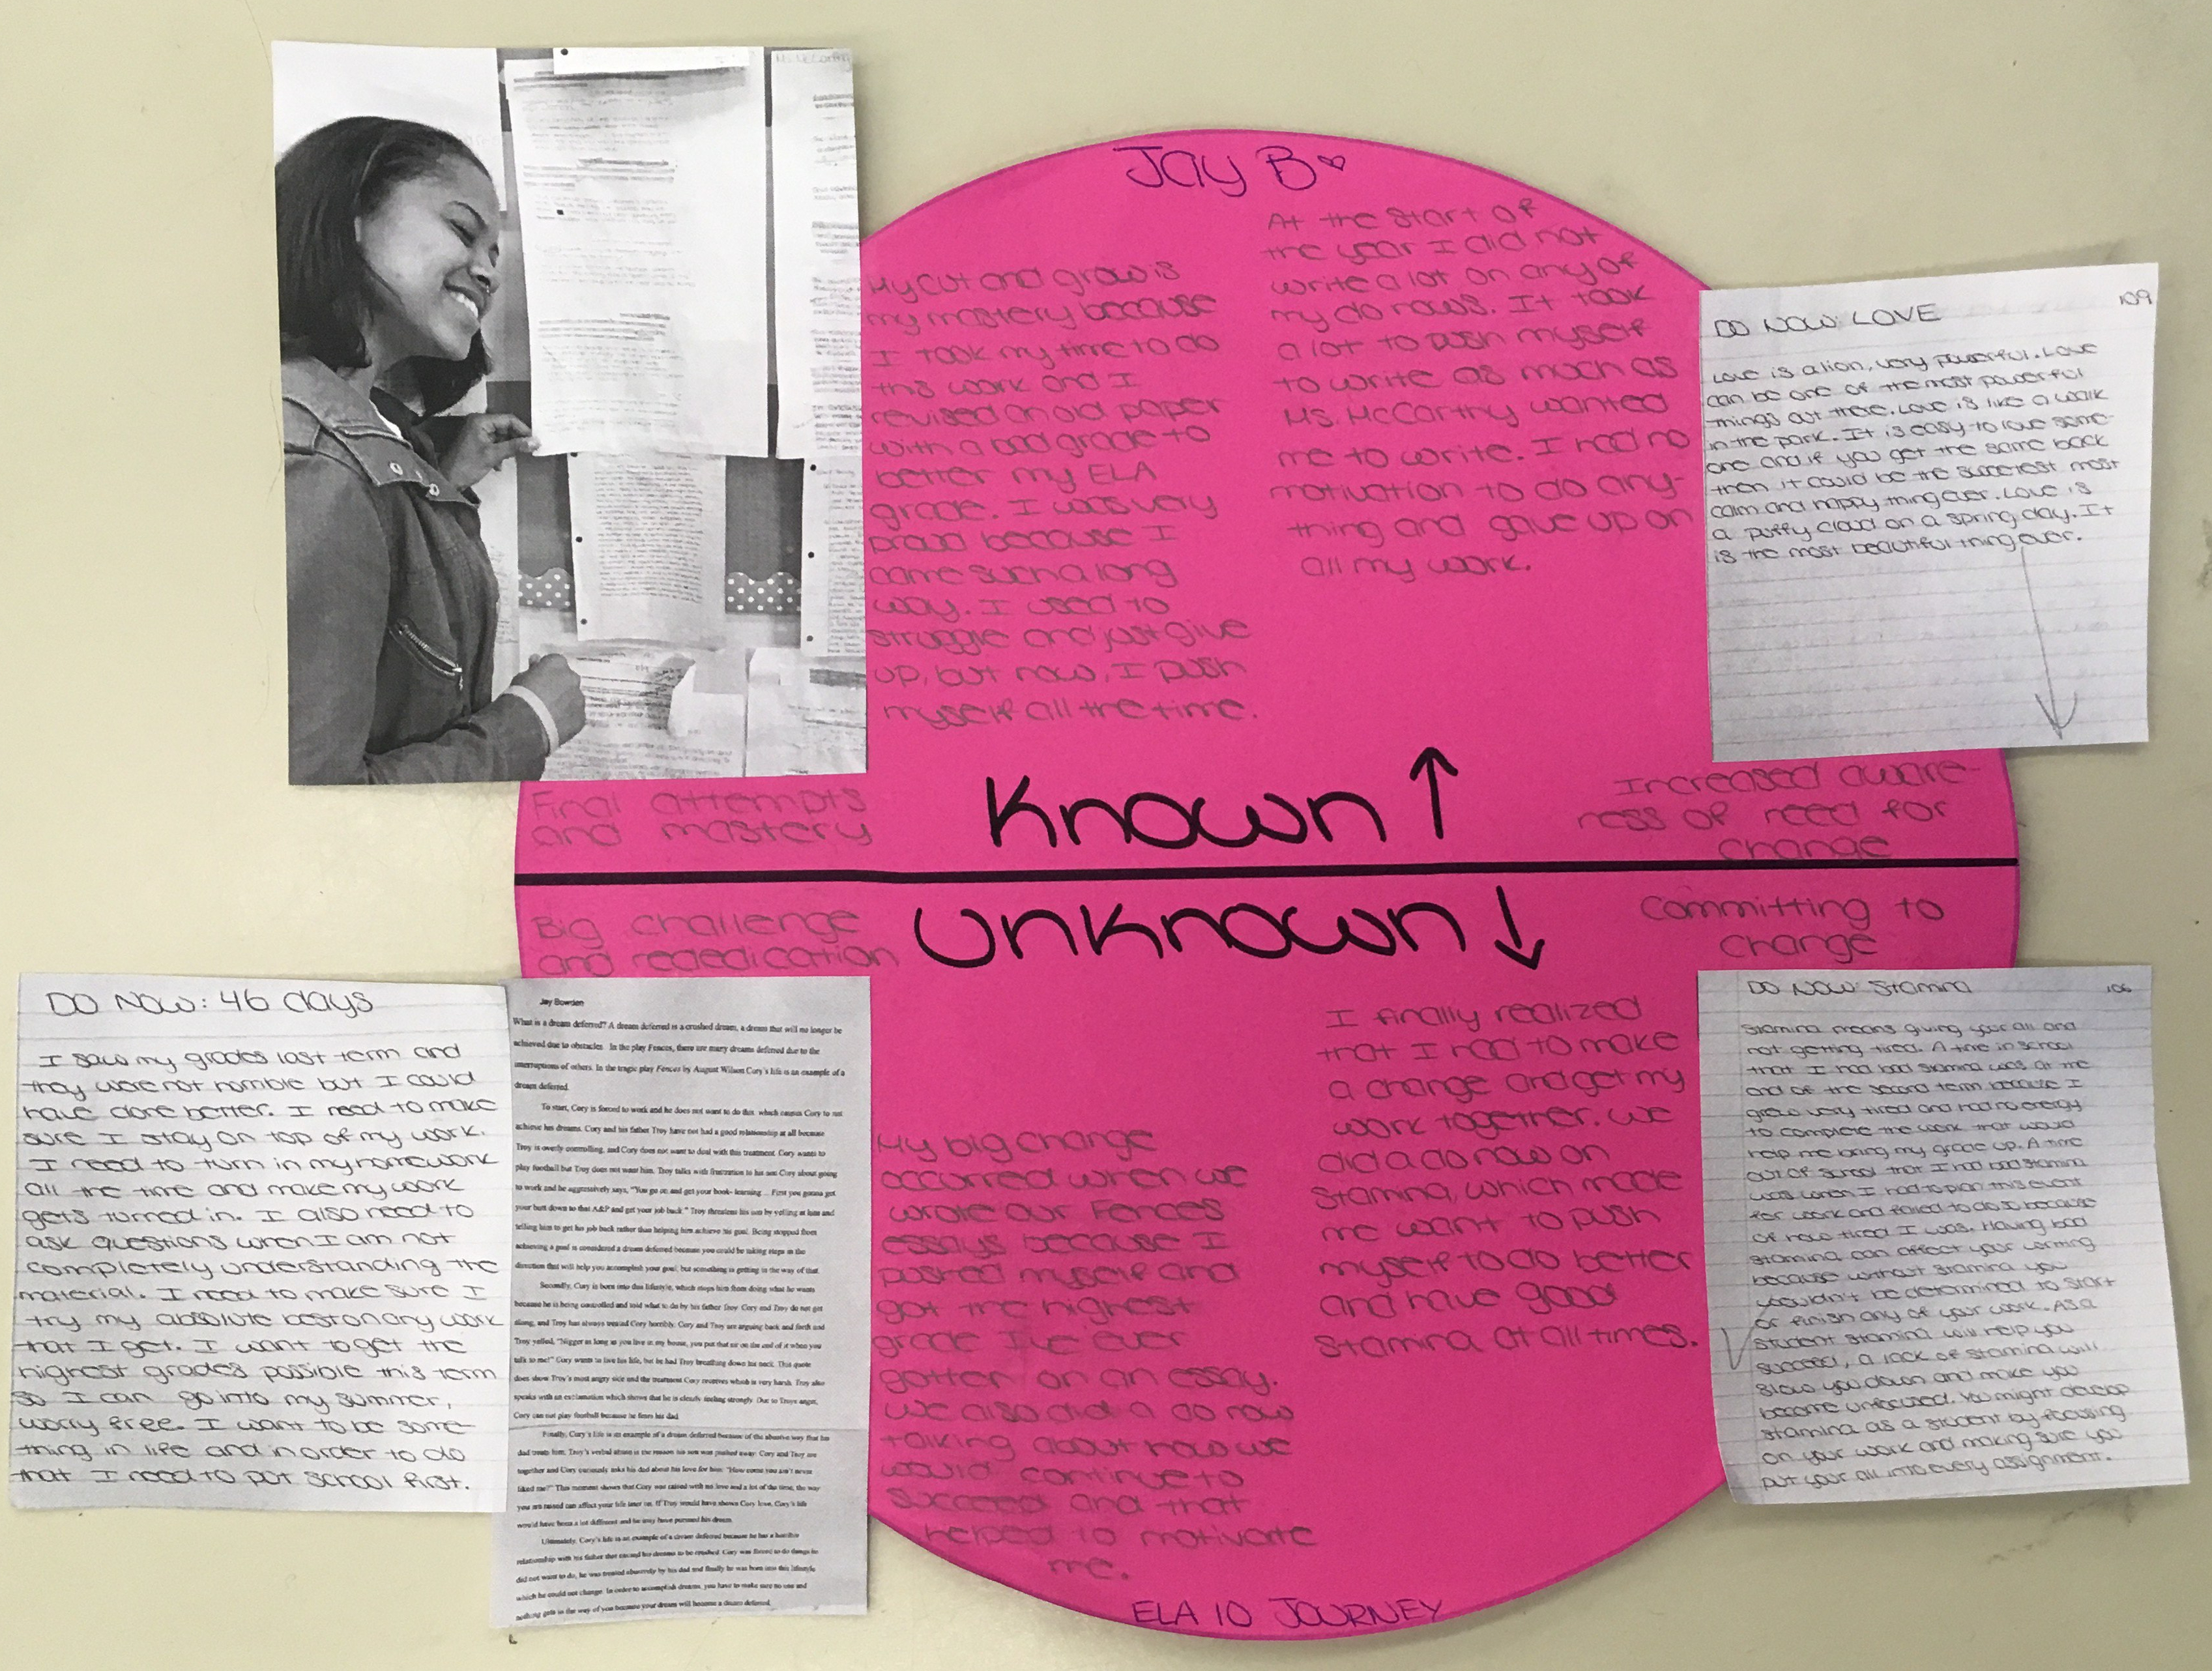 Jay B
My cut and grow is
my mastery because
I took my time to do
this work and I
revised an old paper
with a bad grade to
better my ELA
grade. I was very
proud because I
came such a long
way. I used to
struggle and just give
up, but now, I push
myself all the time.
At the start of
the year I did not
write a lot on any of
my do nows. It took
a lot to push myself
to write as much as
Ms. McCarthy wanted
me to write. I had no
motivation to do any-
thing and gave up on
all my work.
109
DO NOW: LOVE
Love is a lion, very powerful. Love
can be one of the most powerful
things out there. Love is like a walk
in the park. It is easy to love some-
one and if you get the same back
then it could be the sweetest most
calm and happy thing ever. Love is
a puffy cloud on a spring day. It
is the most beautiful thing ever.
Final attempts
and mastery
Known
Increased aware-
ness of need for
change
Big challenge
and rededication
Unknown
Committing to
change
DO NOW: 46 days
I saw my grades last term and
they were not horrible but I could
have done better. I need to make
sure I stay on top of my work.
I need to turn in my homework
all the time and make my work
gets turned in. I also need to
ask questions when I am not
completely understanding the
material. I need to make sure I
try my absolute best on any work
that I get. I want to get the
highest grades possible this term
so I can go into my summer,
worry free. I want to be some-
thing in life and in order to do
that I need to put school first.
Jay Bowden
What is a dream deferred? A dream deferred is a crushed dream, a dream that will no longer be
achieved due to obstacles. In the play Fences, there are many dreams deferred due to the
interruptions of others. In the tragic play Fences by August Wilson Cory's life is an example of a
dream deferred.
To start, Cory is forced to work and he does not want to do this which causes Cory to not
achieve his dreams. Cory and his father Troy have not had a good relationship at all because
Troy is overly controlling, and Cory does not want to deal with this treatment. Cory wants to
play football but Troy does not want him. Troy talks with frustration to his son Cory about going
to work and he aggressively says, "You go on and get your book- learning... First you gonna get
your butt down to that A&P and get your job back." Troy threatens his son by yelling at him and
telling him to get his job back rather than helping him achieve his goal. Being stopped from
achieving a goal is considered a dream deferred because you could be taking steps in the
direction that will help you accomplish your goal, but something is getting in the way of that.
Secondly, Cory is born into this lifestyle, which stops him from doing what he wants
because he is being controlled and told what to do by his father Troy. Cory and Troy do not get
along, and Troy has always treated Cory horribly. Cory and Troy are arguing back and forth and
Troy yelled, "Nigger as long as you live in my house, you put that sir on the end of it when you
talk to me!" Cory wants to live his life, but he had Troy breathing down his neck. This quote
does show Troy's most angry side and the treatment Cory receives which is very harsh. Troy also
speaks with an exclamation which shows that he is clearly feeling strongly. Due to Troys anger,
Cory can not play football because he fears his dad.
Finally, Cory's life is an example of a dream deferred because of the abusive way that his
dad treats him. Troy's verbal abuse is the reason his son was pushed away. Cory and Troy are
together and Cory curiously asks his dad about his love for him: "How come you ain't never
liked me?" This moment shows that Cory was raised with no love and a lot of the time, the way
you are raised can affect your life later on. If Troy would have shown Cory love, Cory's life
would have been a lot different and he may have pursued his dream.
Ultimately, Cory's life is an example of a dream deferred because he has a horrible
relationship with his father that caused his dreams to be crushed. Cory was forced to do things he
did not want to do, he was treated abusively by his dad and finally he was born into this lifestyle
which he could not change. In order to accomplish dreams, you have to make sure no one and
nothing gets in the way of you because your dream will become a dream deferred.
My big change
occurred when we
wrote our Fences
essays because I
pushed myself and
got the highest
grade I've ever
gotten on an essay.
We also did a do now
talking about how we
would continue to
succeed and that
helped to motivate
me.
I finally realized
that I had to make
a change and get my
work together. We
did a do now on
stamina, which made
me want to push
myself to do better
and have good
stamina at all times.
DO NOW: Stamina
106
Stamina means giving your all and
not getting tired. A time in school
that I had bad stamina was at the
end of the second term because I
grew very tired and had no energy
to complete the work that would
help me bring my grade up. A time
out of school that I had bad stamina
was when I had to plan this event
for work and failed to do so because
of how tired I was. Having bad
stamina can affect your writing
because without stamina you
wouldn't be determined to start
or finish any of your work. As a
student stamina will help you
succeed, a lack of stamina will
slow you down and make you
become unfocused. You might develop
stamina as a student by focusing
on your work and making sure you
put your all into every assignment.
ELA 10 JOURNEY